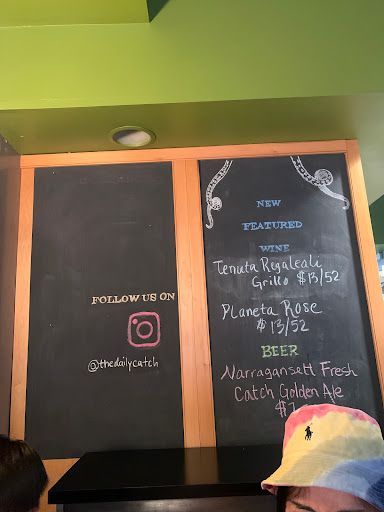 FOLLOW US ON
@thedailycatch
NEW
FEATURED
WINE
Tenuta Regaleali
Grillo $13/52
Planeta Rose
$13/52
BEER
Narragansett Fresh
Catch Golden Ale
$7